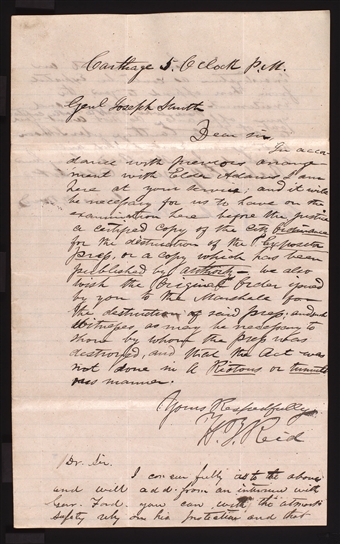 Carthage 5. O Clock P.M.
Genl Joseph Smith
Dear sir
In accor-
dance with previous arrange
ment with Elder Adams I am
here at your service; and it will
be necessary for us to have on the
examination here before the justice
a certified copy of the city Ordinance
for the destruction of the "Expositor
press, or a copy which has been
published by authority — we also
wish the Original Order issued
by you to the Marshall for
the destruction of said press; and such
witnesses, as may be necessary to
show by whom the press was
destroyed, and that the Act was
not done in a Riotous or tumult
ous manner.
Yours Respectfully
H. T. Reid
Dr. Sir.
I concur fully as to the above
and will add from an interview with
Gov. Ford. you can with the utmost
safety rely on his protection and that